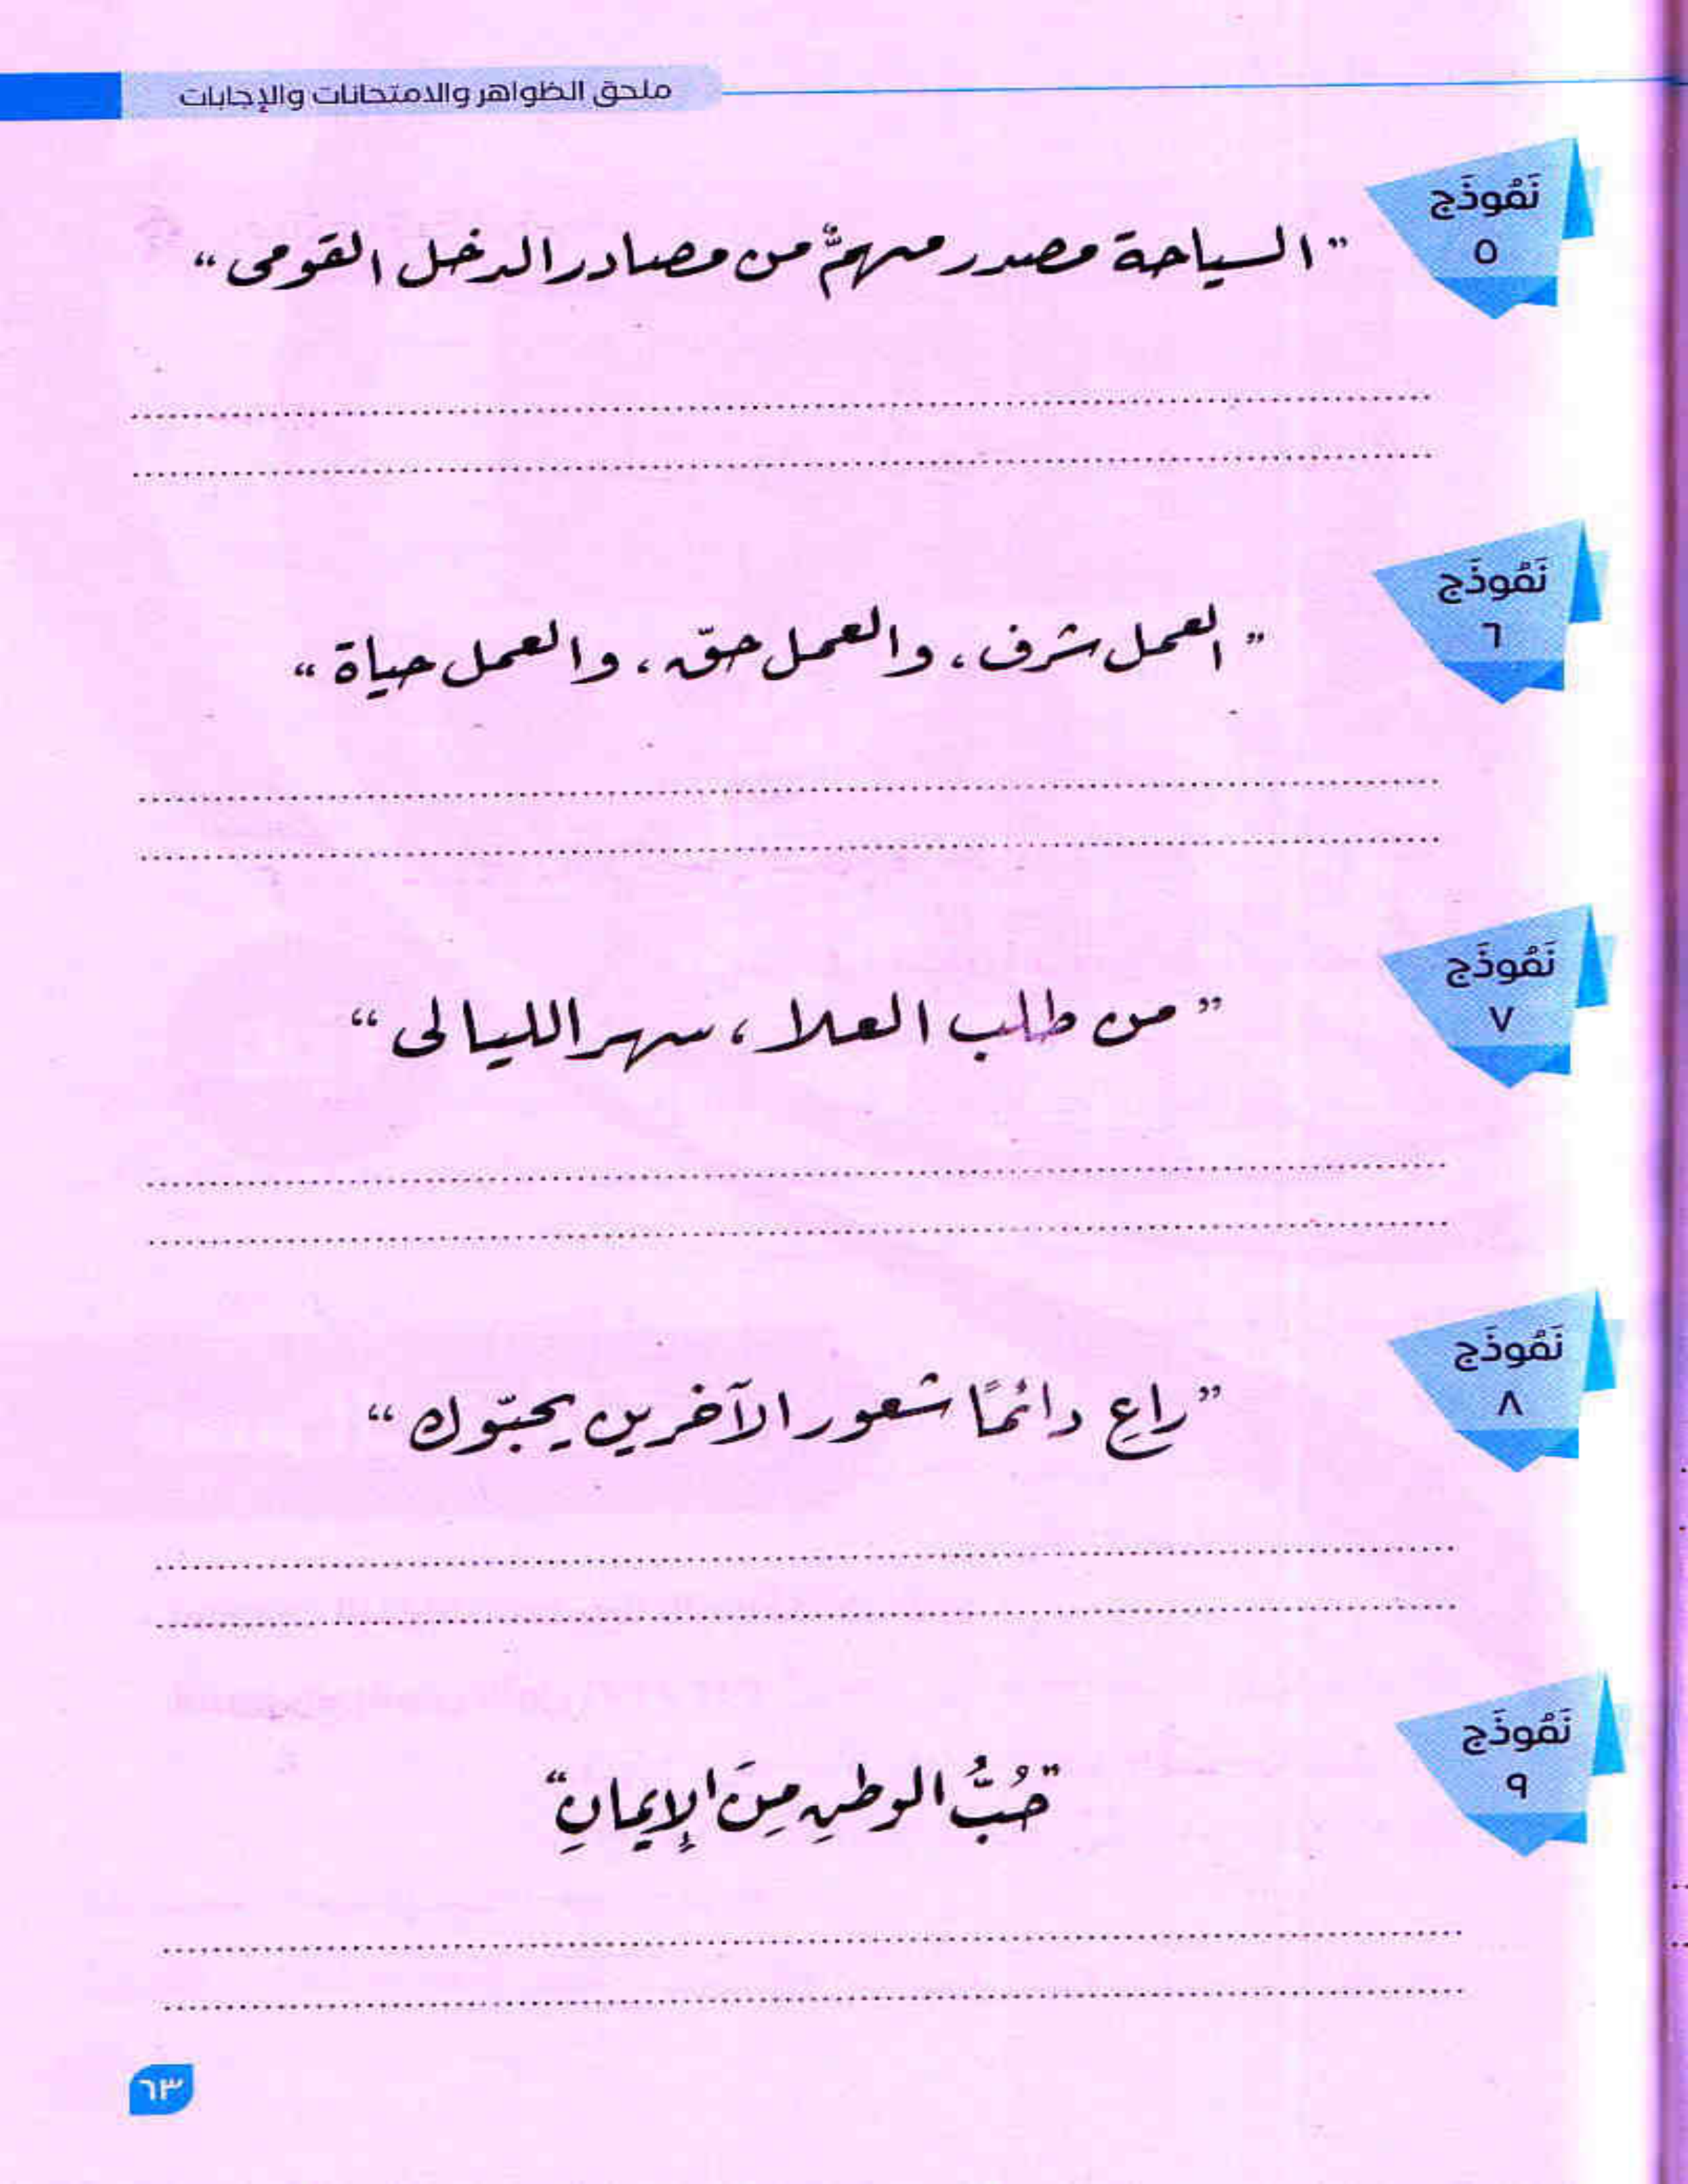 ملحق الظواهر والامتحانات والإجابات
نَمُوذَج
٥
"السياحة مصدر مهمٌّ من مصادر الدخل القومى"
نَمُوذَج
٦
"العمل شرف، والعمل حقّ، والعمل حياة"
نَمُوذَج
٧
"من طلب العلا، سهر الليالى"
نَمُوذَج
٨
"راعِ دائمًا شعور الآخرين يحبّوك"
نَمُوذَج
٩
"حُبُّ الوطنِ مِنَ الإِيمانِ"
٦٣